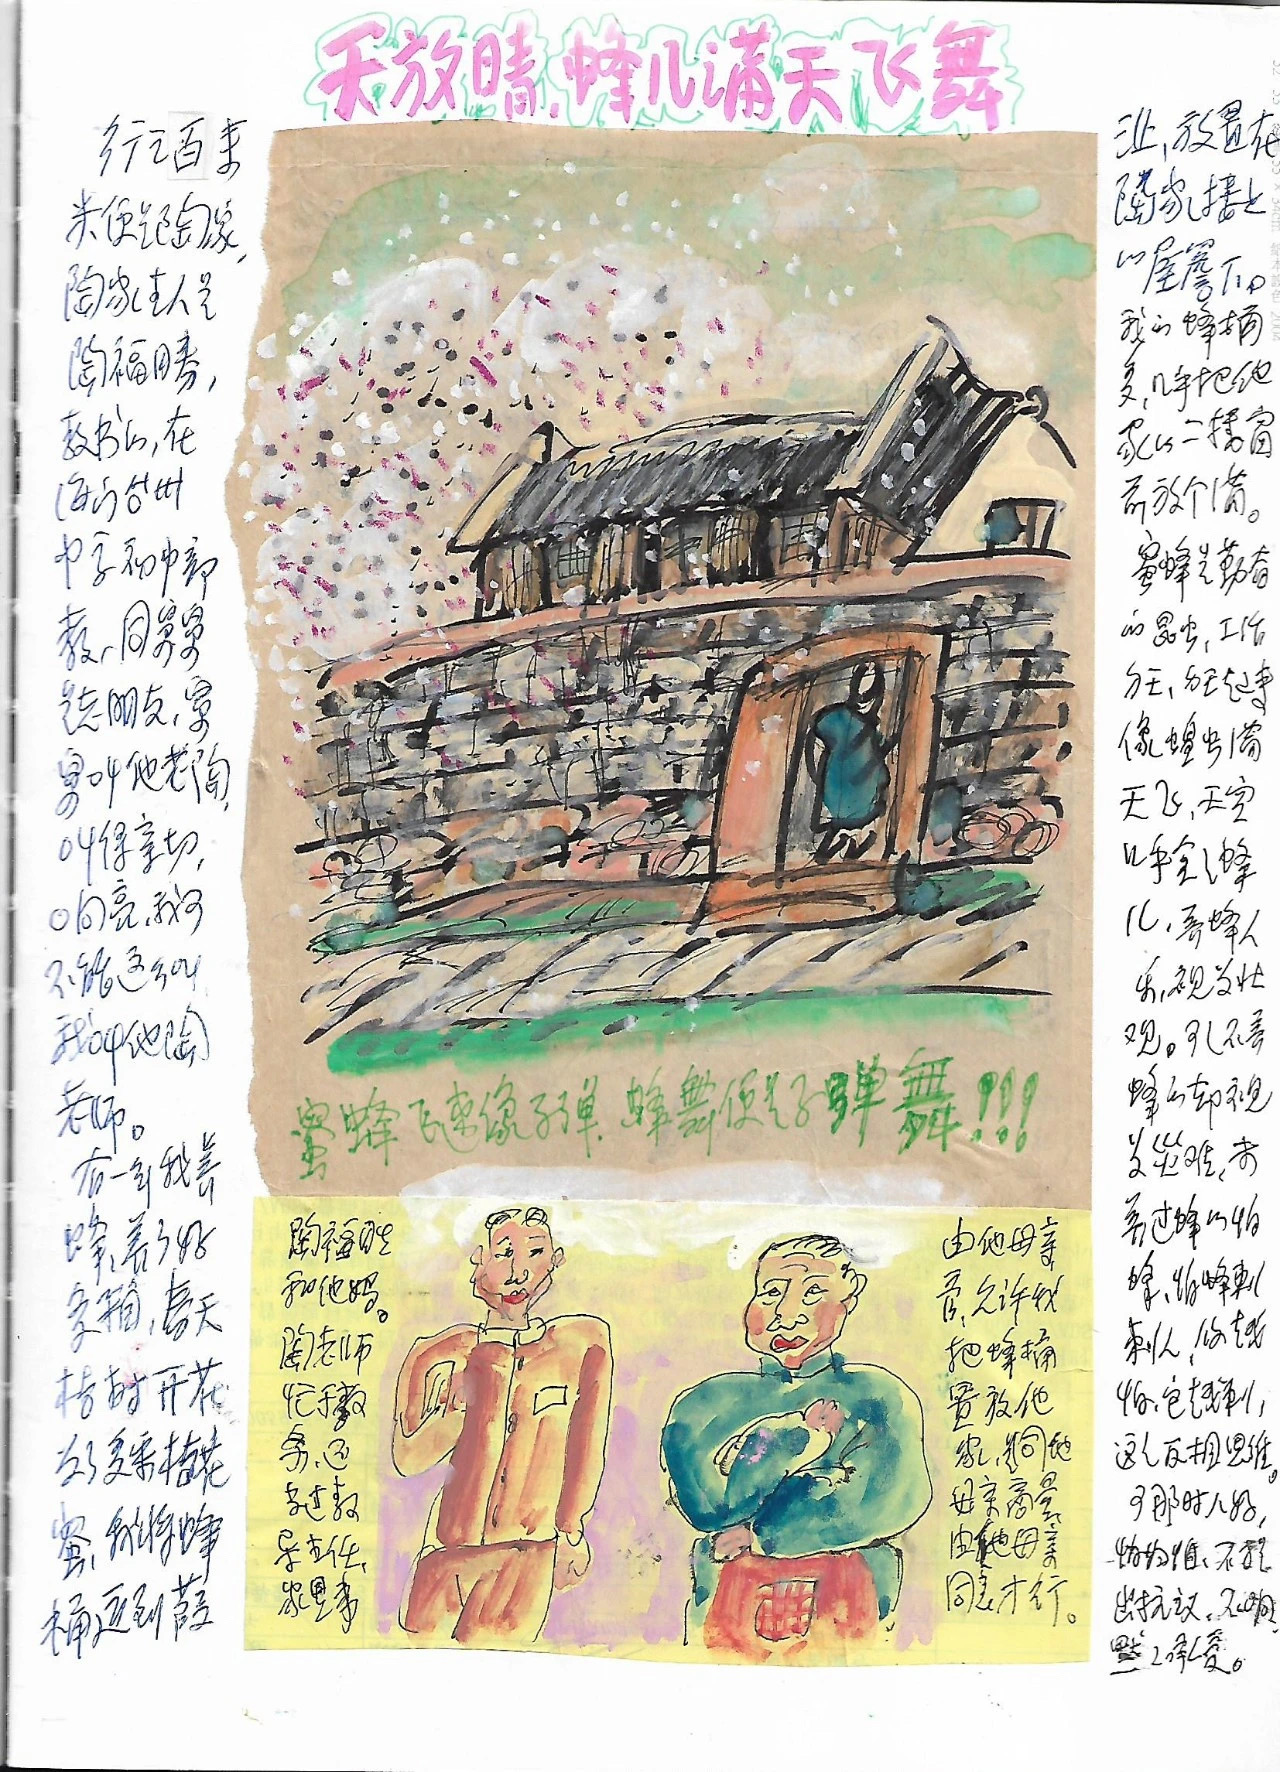 天放晴，蜂儿满天飞舞
行之百来
米便是陶家，
陶家主人是
陶福胜，
教书的，在
海门台州
中学初中部
教，同舅舅
是老朋友，舅
舅叫他老陶，
叫得亲切，
响亮，我可
不能这么叫，
我叫他陶
老师。
有一年我养
蜂，养了好
多箱，春天
桔树开花
为了多采桔花
蜜，我将蜂
桶运到葭
沚，放置在
陶家楼上
的屋檐下。
我的蜂桶
多，几乎把他
家的二楼窗
前放个满。
蜜蜂是勤奋
的昆虫，工作
像蝗虫满
天飞，天空
几乎全是蜂
儿，养蜂人
乐，视为壮
观。可不养
蜂的却视
为灾难，未
养过蜂的怕
蜂，怕蜂刺
刺人，你越
怕，它越刺，
这是反相思维。
可那时人好，
出抗议，
默默承受。
蜜蜂飞速像子弹，蜂舞便是子弹舞！！！
陶福胜
和他妈。
陶老师
忙于教
务，还
当过教
导主任，
家里事
由他母亲
管，允许我
把蜂桶
置放他
家，是同他
母亲商量，
由他母亲
同意才行。